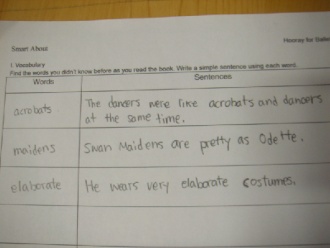 Smart About
Hooray for Ballet
I. Vocabulary
Find the words you didn't know before as you read the book. Write a simple sentence using each word.
Words
Sentences
acrobats
The dancers were like acrobats and dancers
at the same time.
maidens
Swan Maidens are pretty as Odette.
elaborate
He wears very elaborate costumes.